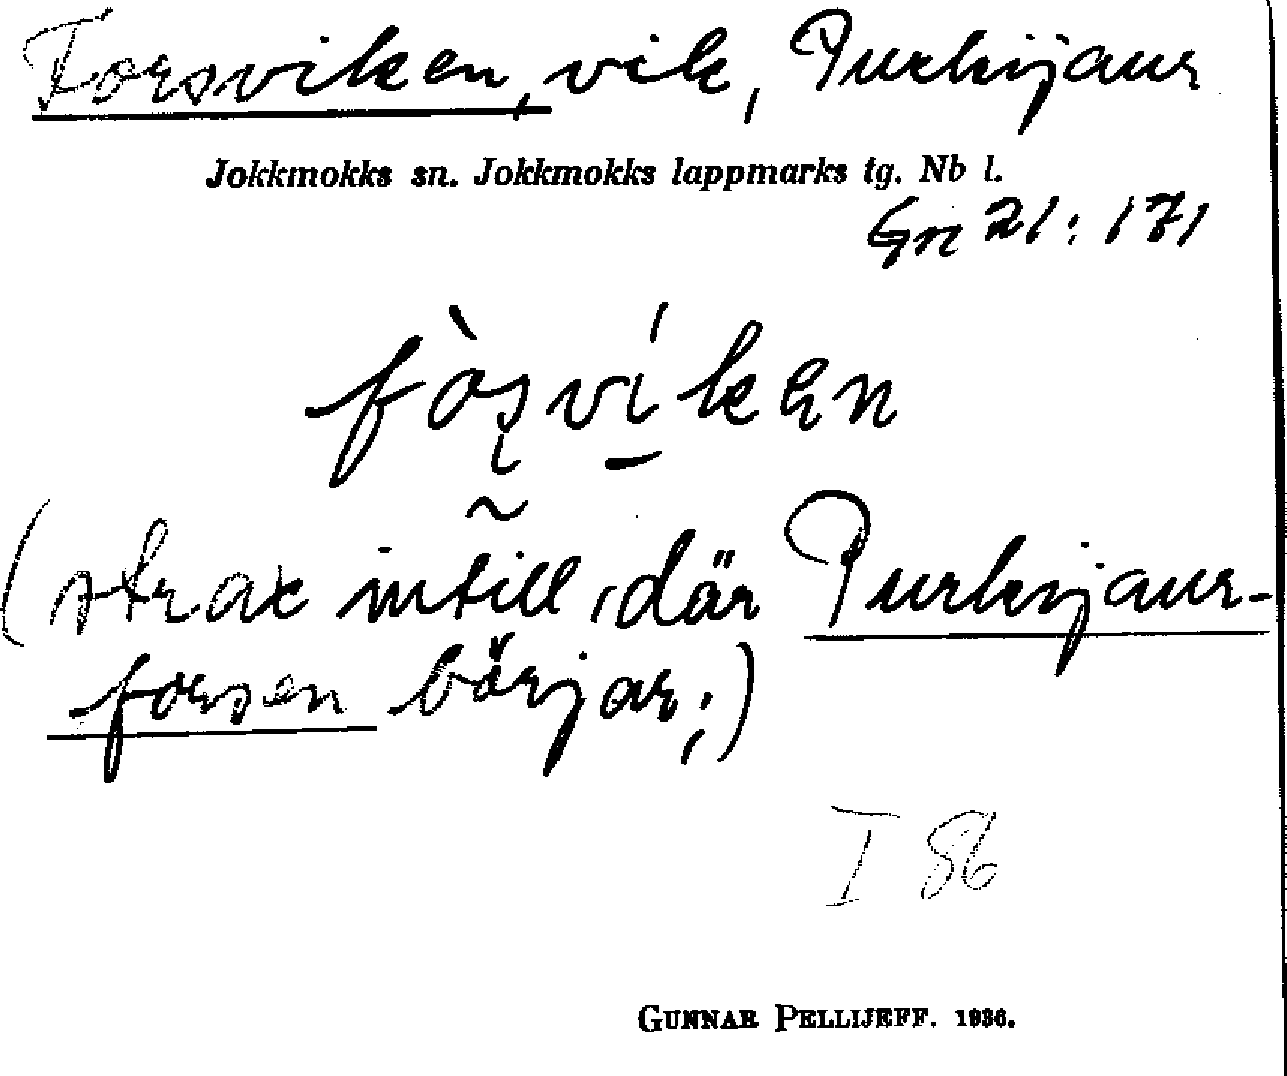 Forsviken, vik, Purkijaur
Jokkmokks sn. Jokkmokks lappmarks tg. Nb l.
Gn 21: 171
fòşvíken
(strax intill, där Purkijaur-
forsen börjar;)
I 86
GUNNAR PELLIJEFF. 1936.